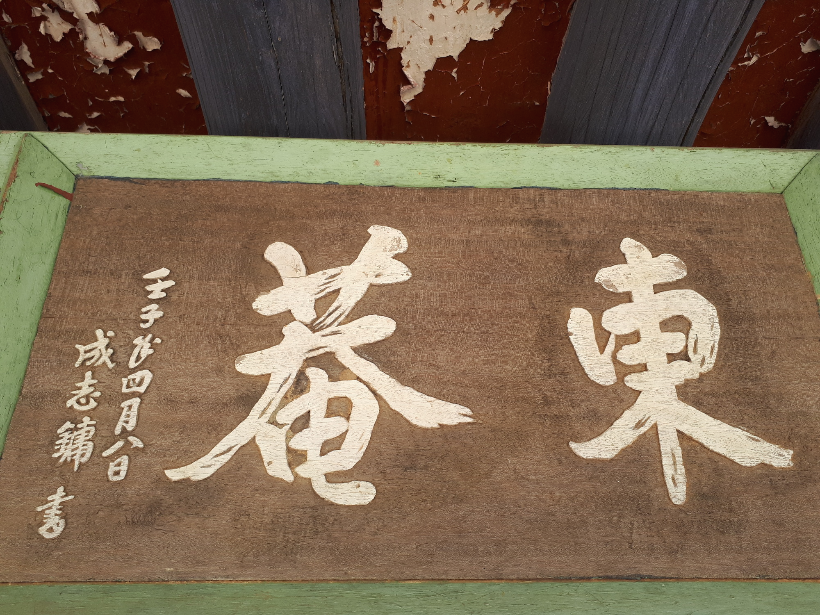 東菴
壬子四月八日
成志鏞 書